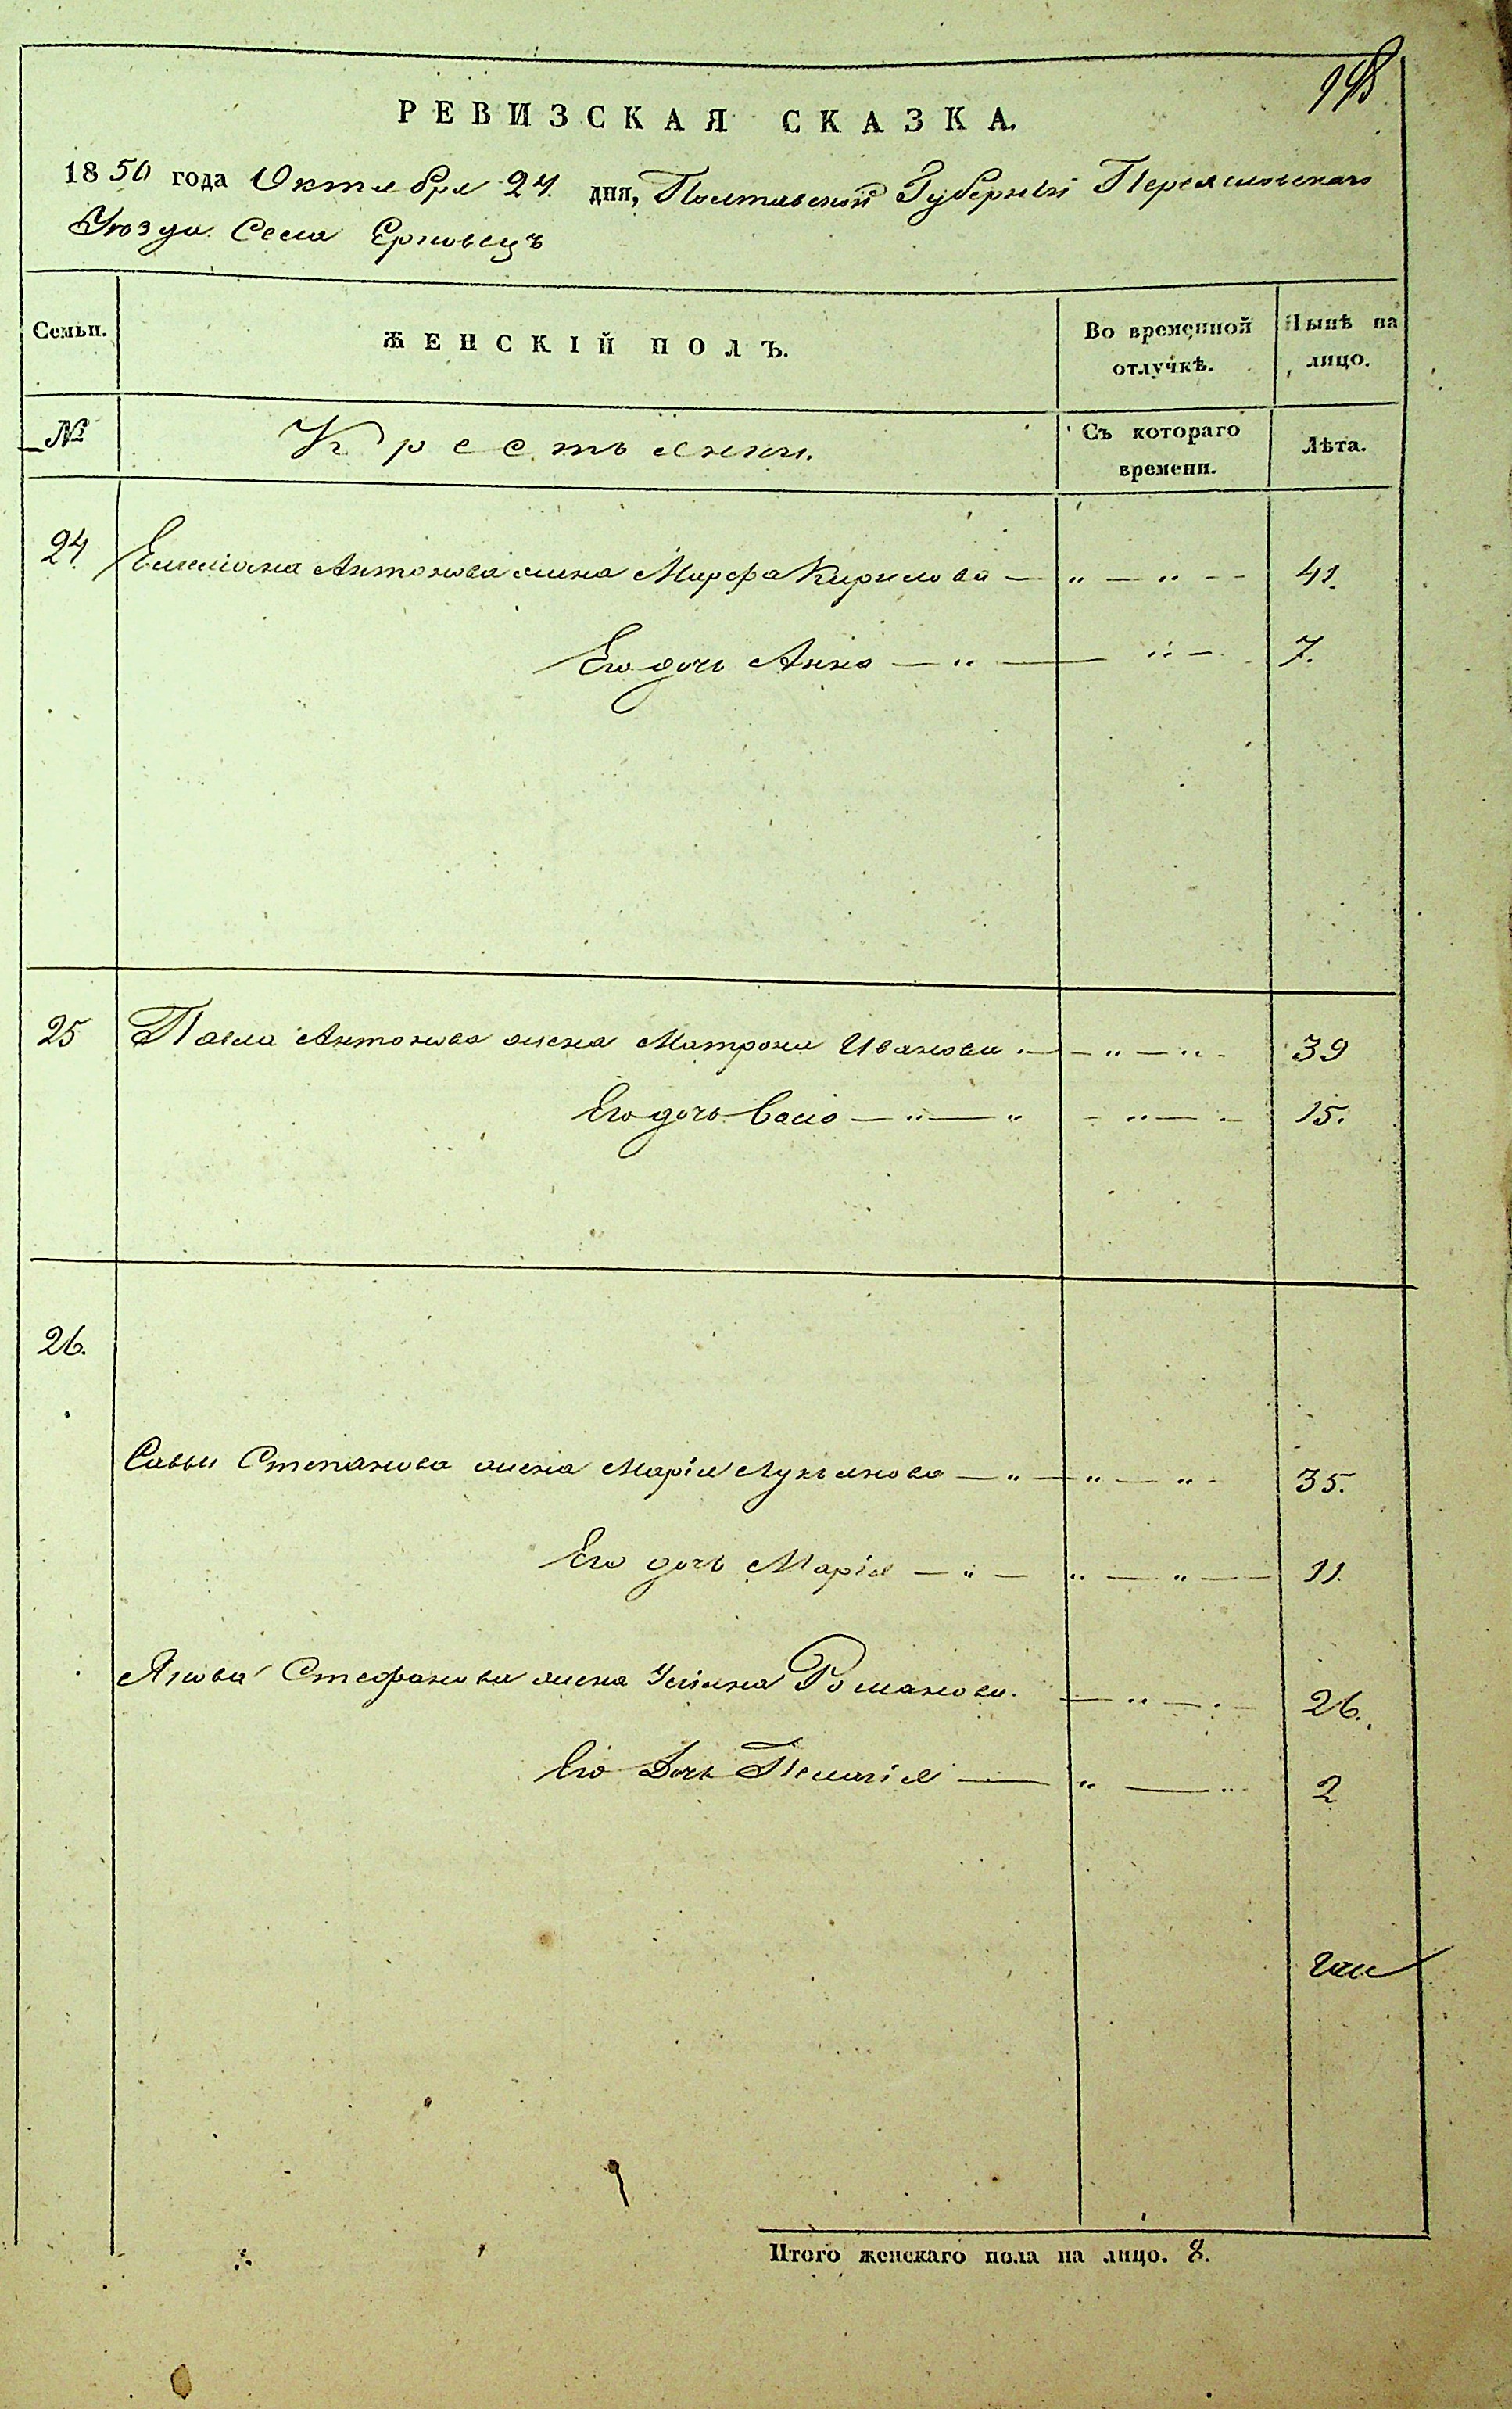 198
РЕВИЗСКАЯ СКАЗКА.
1850 года Октября 24 дня, Полтавской Губерніи Переяславскаго
Уѣзда Села Ерковецъ
Семьи.
ЖЕНСКІЙ ПОЛЪ.
Во временной отлучкѣ.
Нынѣ на лицо.
№
Крестьянки.
Съ котораго времени.
Лѣта.
24 Емеліана Антонова жена Марфа Кирилова — " — " — — 41.
Его дочь Анна — " — " — 7.
25 Павла Антонова жена Матрона Иванова " — — " — " - 39
Его дочь — " — " - " — - 15.
26.
Савы Степанова жена Марія Лукьянова — " — " — " - 35.
Его дочь Марія — " — " — " — 11.
Якова Стефанова жена Уліяна Романова. — " — " — 26.
Его Дочь Пелагія — " — " 2
Итого женскаго пола на лицо. 8.